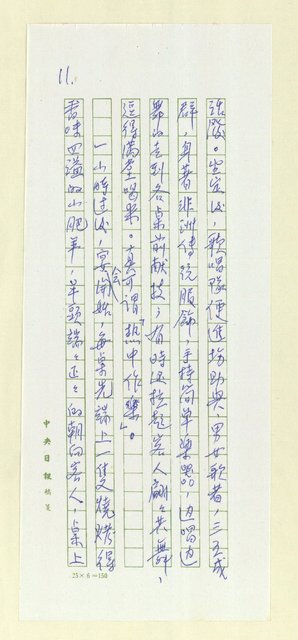 11.
酒嚴。坐定後，歌唱隊便進場助興，男女歌者，三五成
群，身著非洲傳統服飾，手持簡單樂器，邊唱邊
舞的走到各桌前獻技；有時還拉起客人翩翩共舞，
逗得滿堂喝采。真可謂「熱中作樂」。
一小時过後，宴会開始，每桌先端上一隻燒烤得
香味四溢的小肥羊，羊頭端端正正的朝向客人，桌上
中央日報稿箋
25×6=150